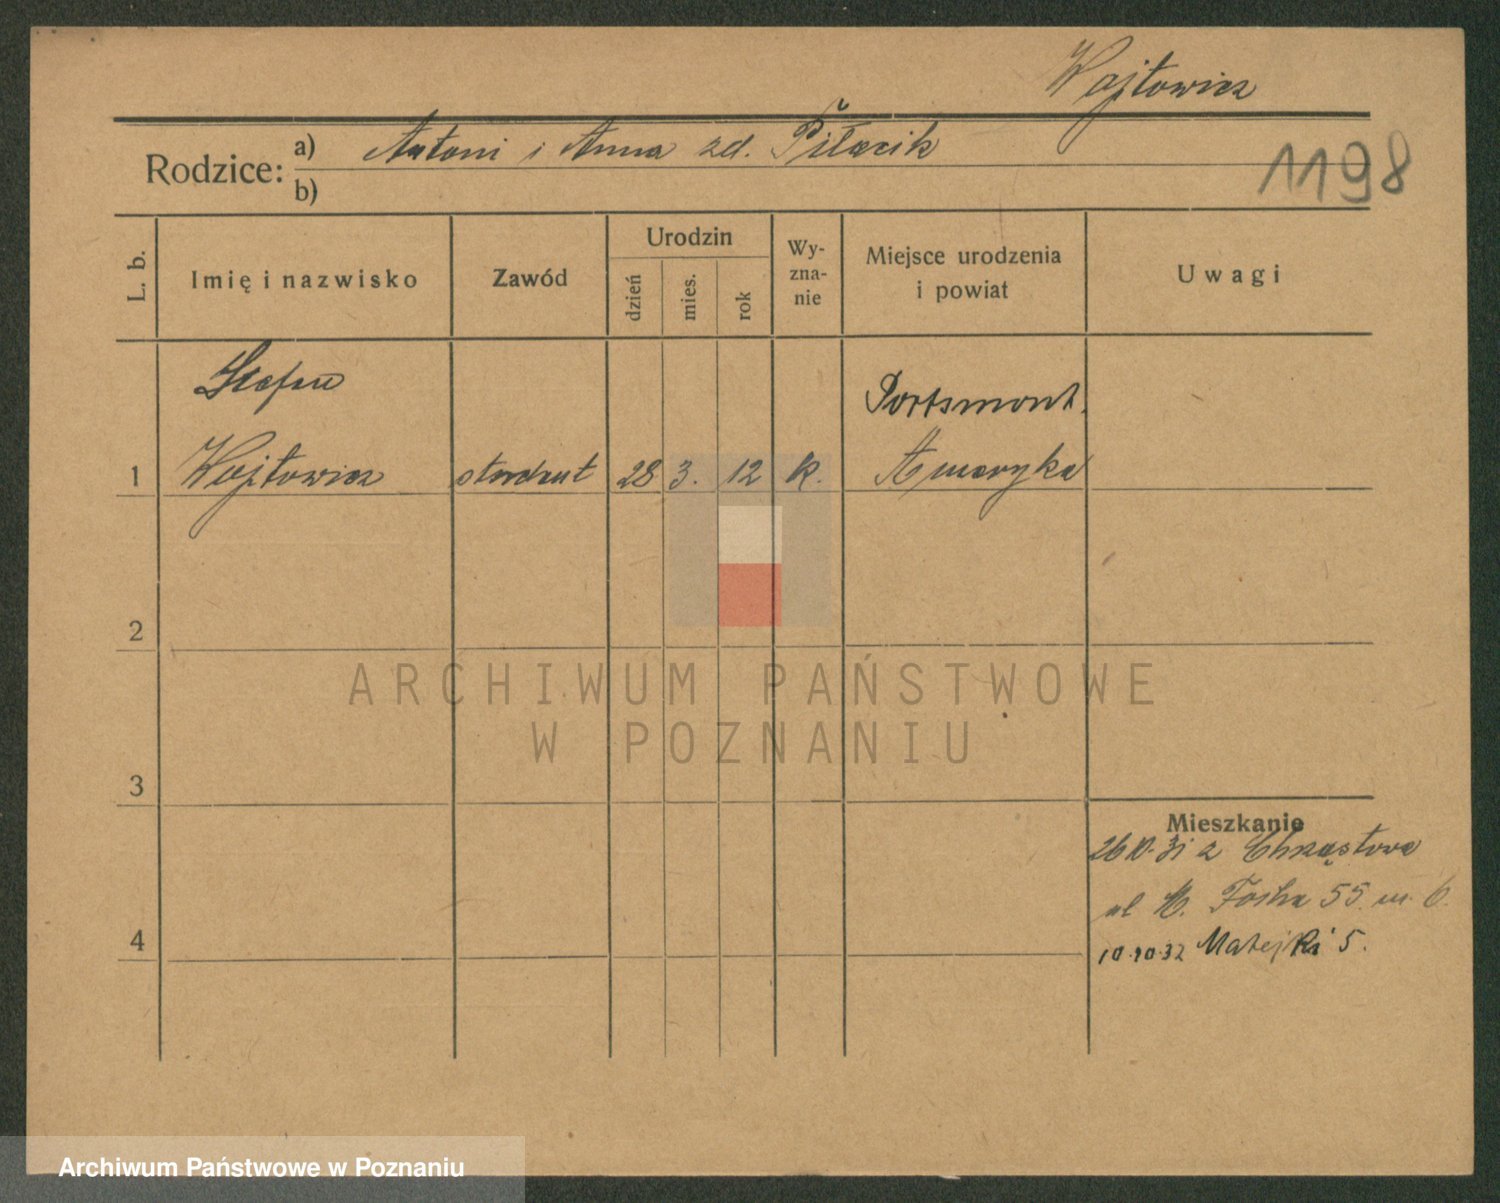 Wojtowicz
Rodzice: a) Antoni i Anna zd.
1198
b)
L. b.
Imię i nazwisko
Zawód
Urodzin
dzień
mies.
rok
Wy-
zna-
nie
Miejsce urodzenia
i powiat
Uwagi
Stefan
Portsmont.
1 Wojtowicz student 28 3. 12 k. Ameryka
2
ARCHIWUM PAŃSTWOWE
W POZNANIU
3
Mieszkanie
26 10. 31 z Chrząstowa
ul M. Focha 55. m. 6.
4
10.10.32 Matejki 5.
Archiwum Państwowe w Poznaniu